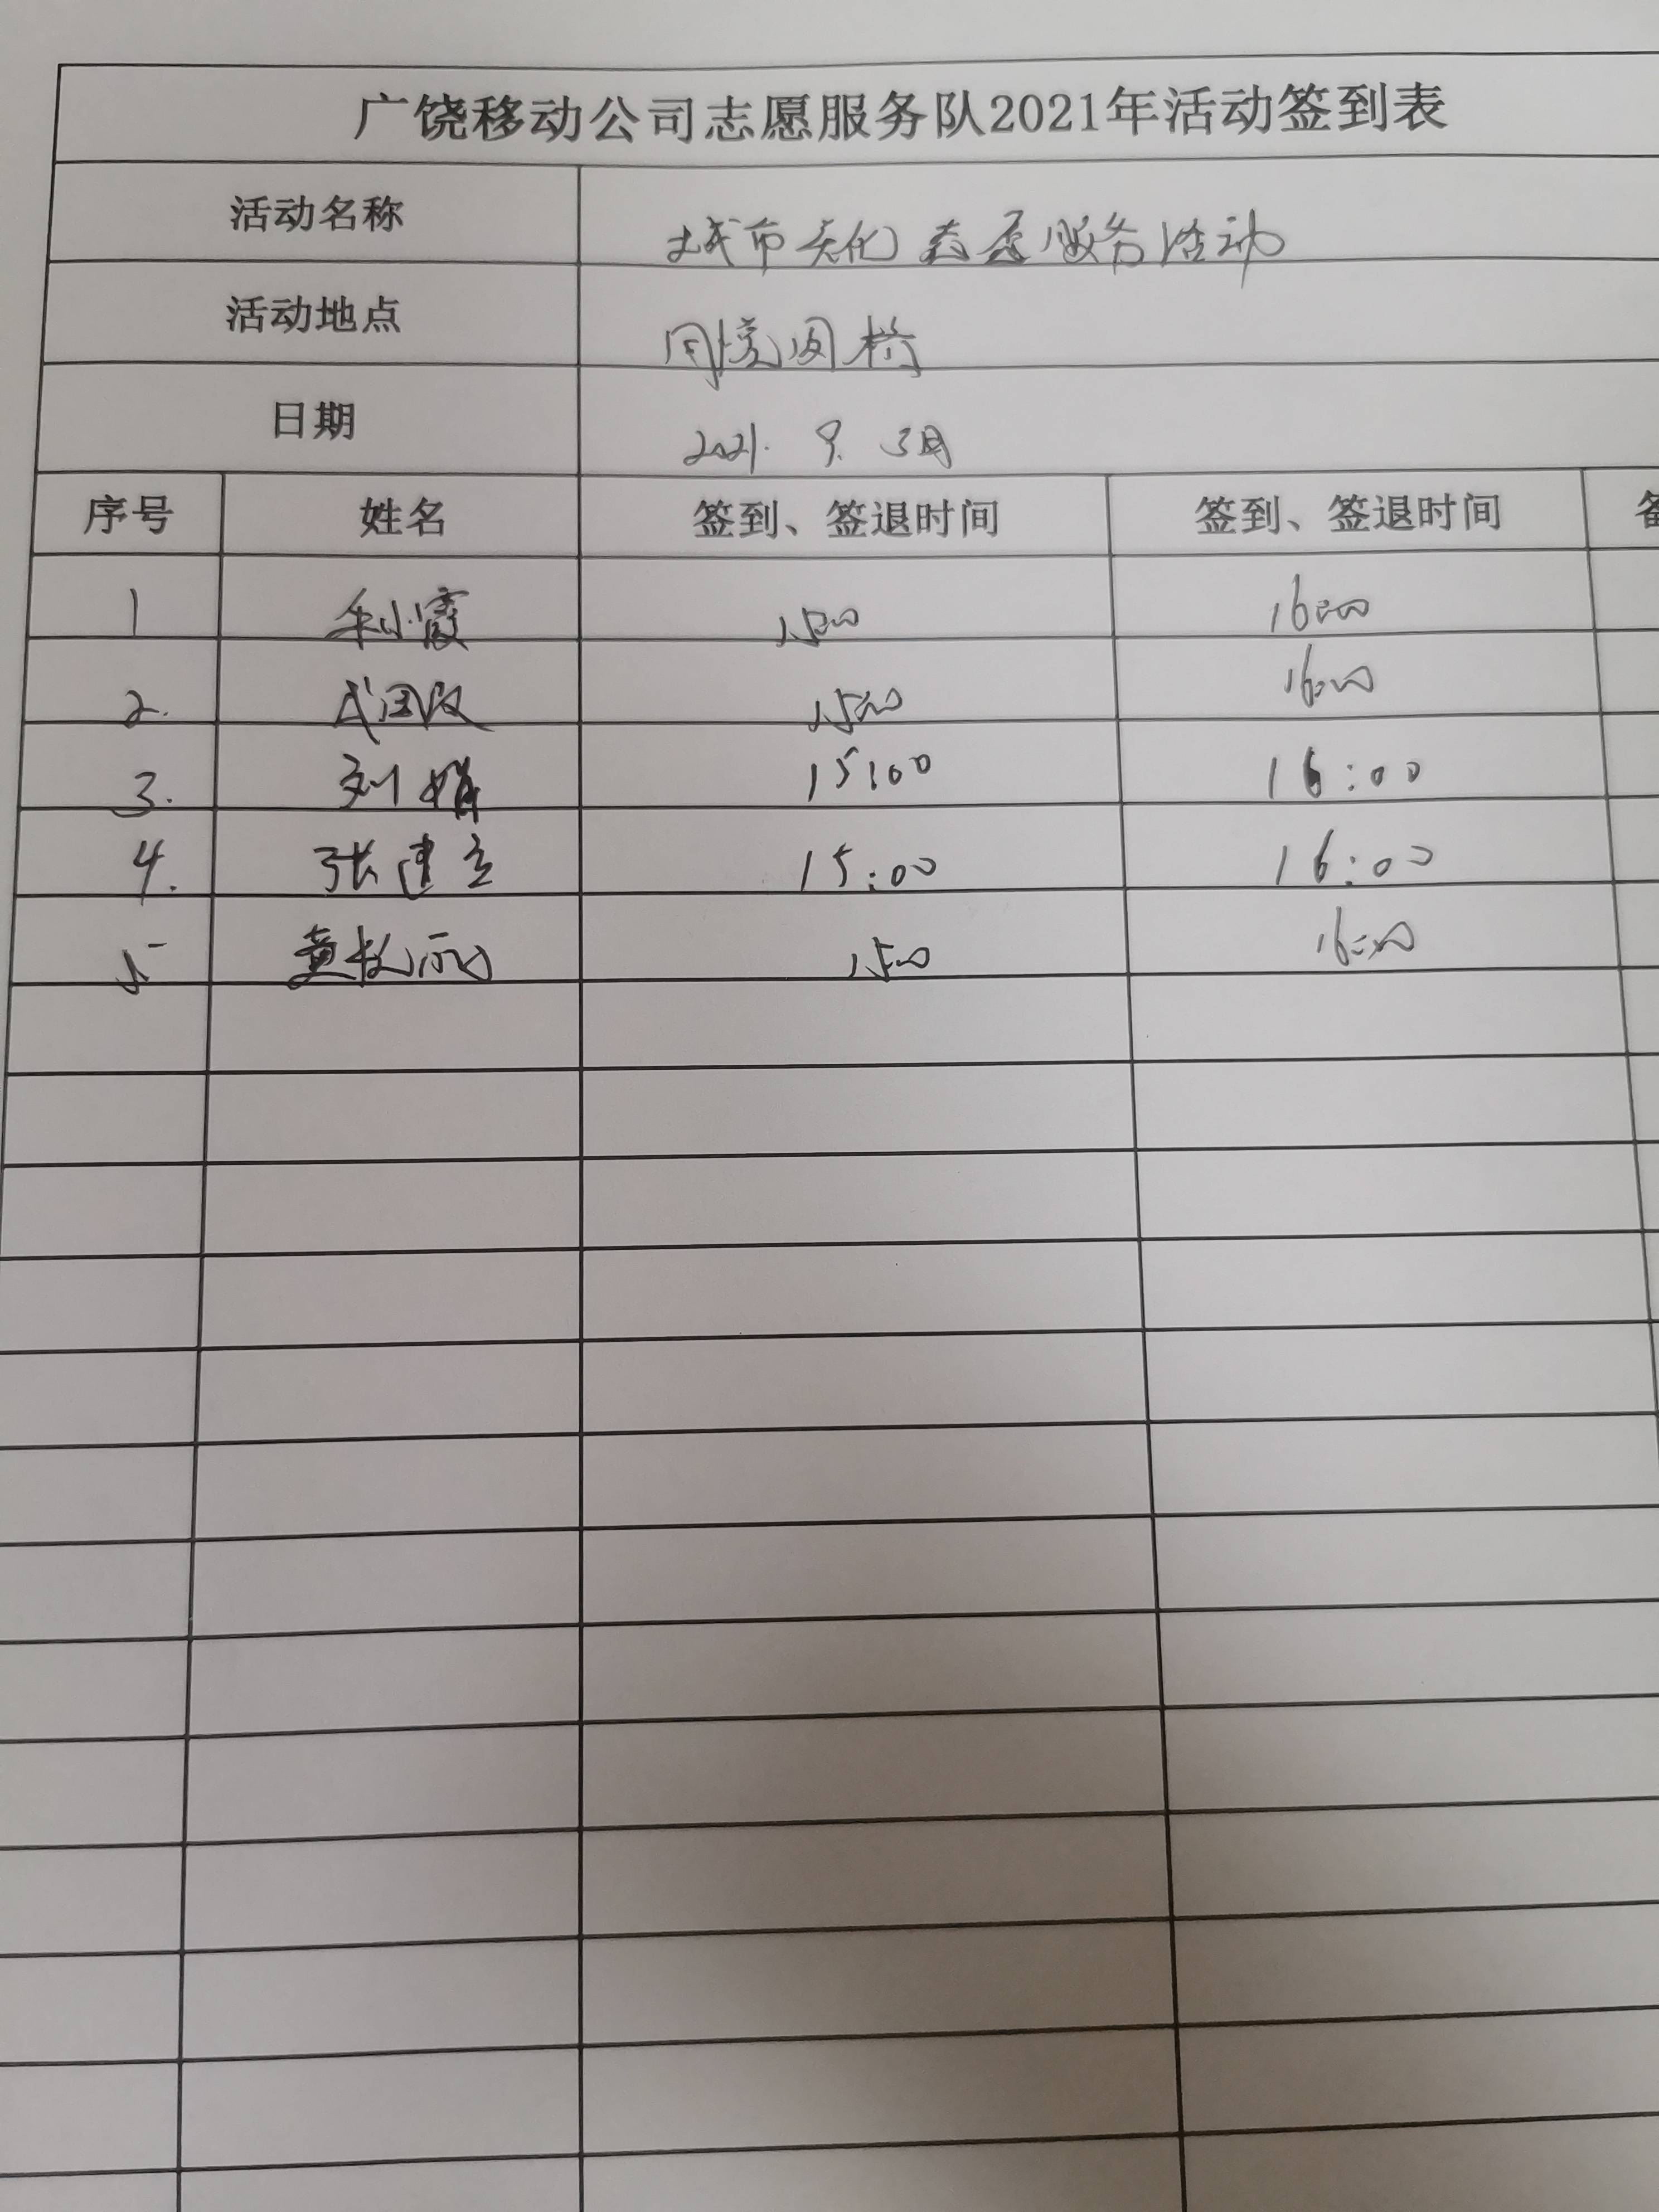 广饶移动公司志愿服务队2021年活动签到表
活动名称 城市美化志愿服务活动
活动地点
日期 2021. 9.
序号 姓名 签到、签退时间 签到、签退时间 备
1 小霞 1500 16:00
2. 武国 1500 16:00
3. 刘娟 15:00 16:00
4. 张建立 15:00 16:00
5 黄 丽 1500 16:00